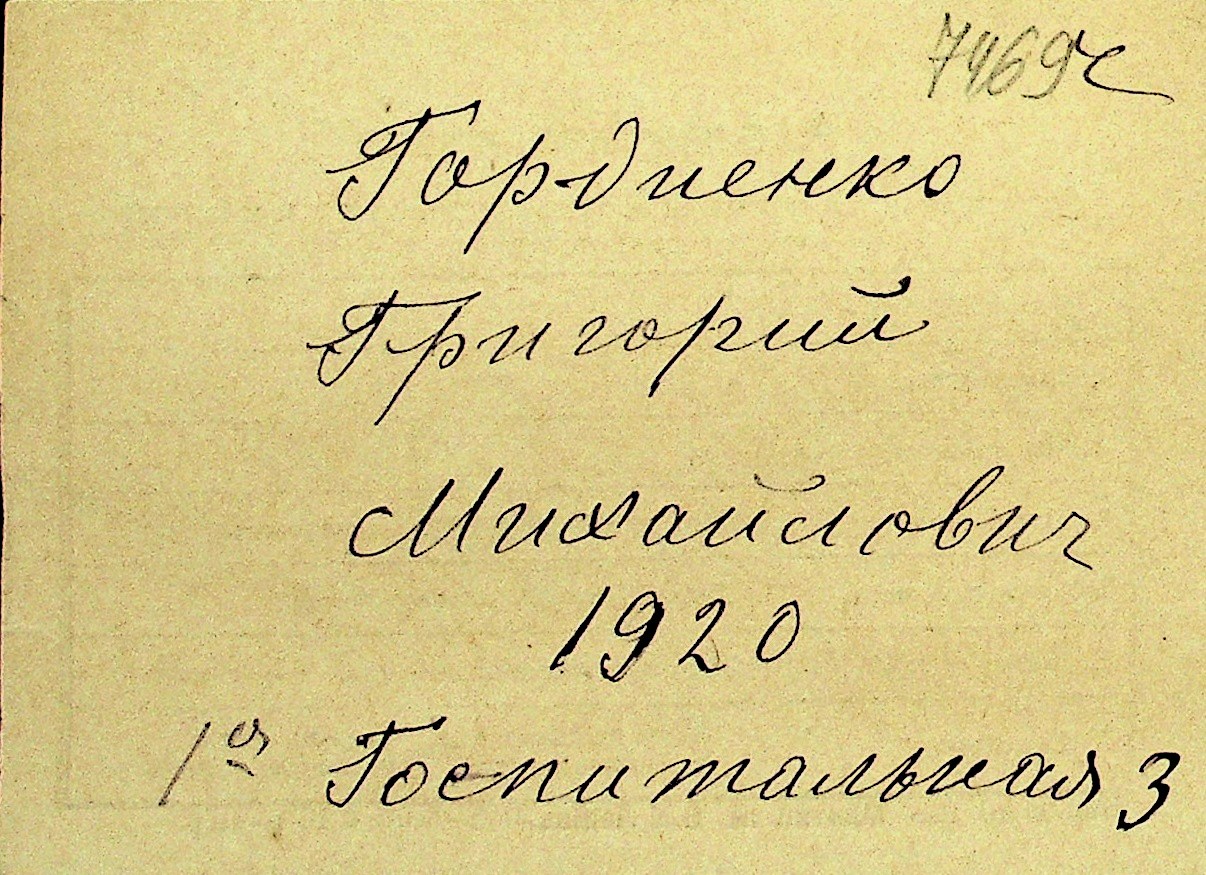 7469ч
Гордиенко
Григорий
Михайлович
1920
1ая Госпитальная 3